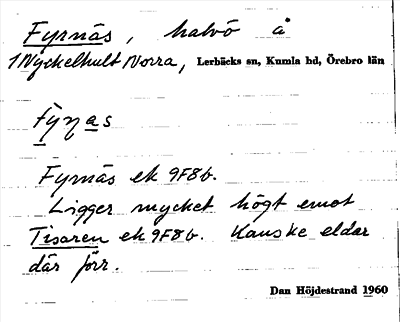 Fyrnäs, halvö å
1 Nyckelhult Norra, Lerbäcks sn, Kumla hd, Örebro län
Fyṇas
Fyrnäs ek 9F8b.
Ligger mycket högt emot
Tisaren ek 9F8b. Kanske eldar
där förr.
Dan Höjdestrand 1960